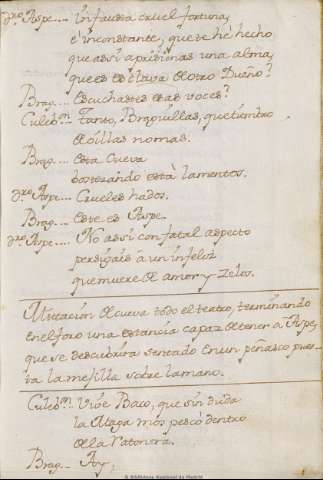 dro Aspe.... Infausta cruel fortuna,
è inconstante, que te hè hecho
que assi aprisionas una alma,
que es esclava de otro Dueño?
Brag.... Escuchastes esas voces?
Culeb.n: Tanto, Bragvillas, que tiemblo
de oillas nomas.
Brag.... Esta Cueva
bostezando està lamentos.
dro Aspe.... Crueles hados.
Brag.... Este es Aspe.
dro Aspe.... No assi con fatal aspecto
persigais a un infeliz
que muere de amor y Zelos.
Mutación de cueva todo el teatro, terminando
en el foro una estancia capaz de tener a Aspe,
que se descubrira sentado en un peñasco pues-
ta la mexilla sobre la mano.
Culeb.n: Vive Baco, que sin duda
la Maga nos pescò dentro
de la Ratonera.
Brag... Ay,
© Biblioteca Nacional de Madrid